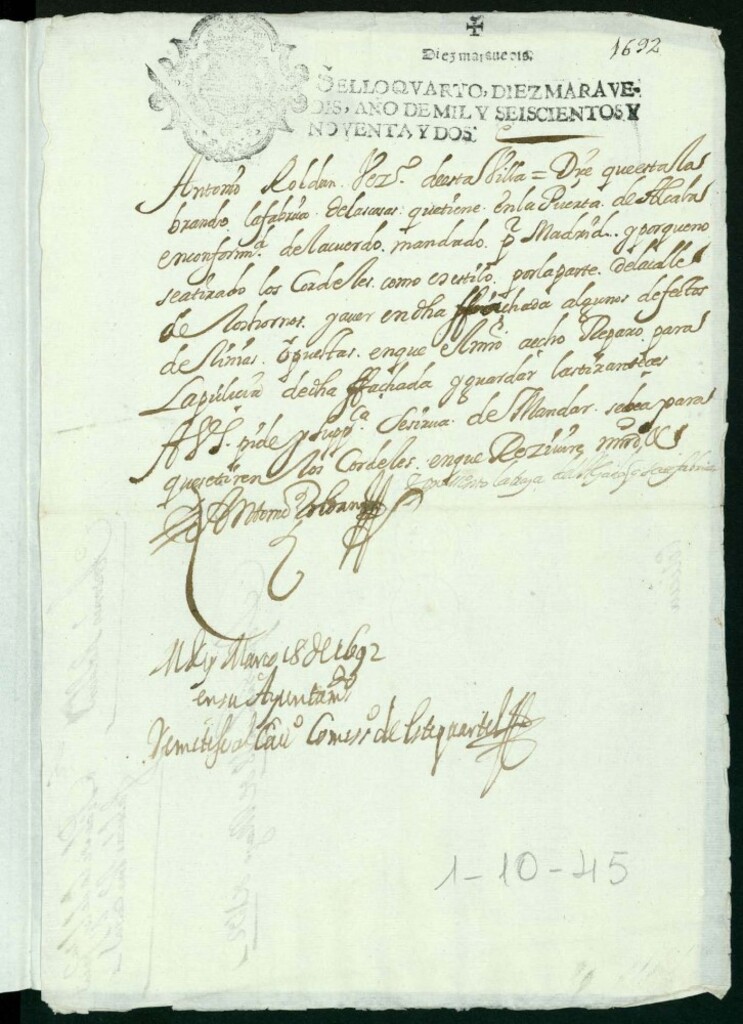 ✠
Diez marauedis.
1692
SELLO QVARTO, DIEZ MARAVE-
DIS, AÑO DE MIL Y SEISCIENTOS Y
NOVENTA Y DOS.
Antonio Roldan Vezº. desta Villa = Dize que esta la
brando la fabrica de las casas que tiene en la Puerta de Alcala
en conformd. del acuerdo mandado pr Madrid. y porque no
se a tirado los Cordeles como es estilo por la parte de la calle
de los hornos. y auer en dha fachada algunos defectos
de linias opuestas en que el Mro a echo Reparo para
La pulicia de dha ffachada y guardar las tiranteces
A VS. pide y suppca. se sirua de Mandar se bea para
que se tiren los Cordeles en que Reziuira mrd, &
Antonio Roldan
Md y Marzo 18 de 1692
en su Ayuntamto
Remitese al Cauo Comisro de este quartel
1-10-45